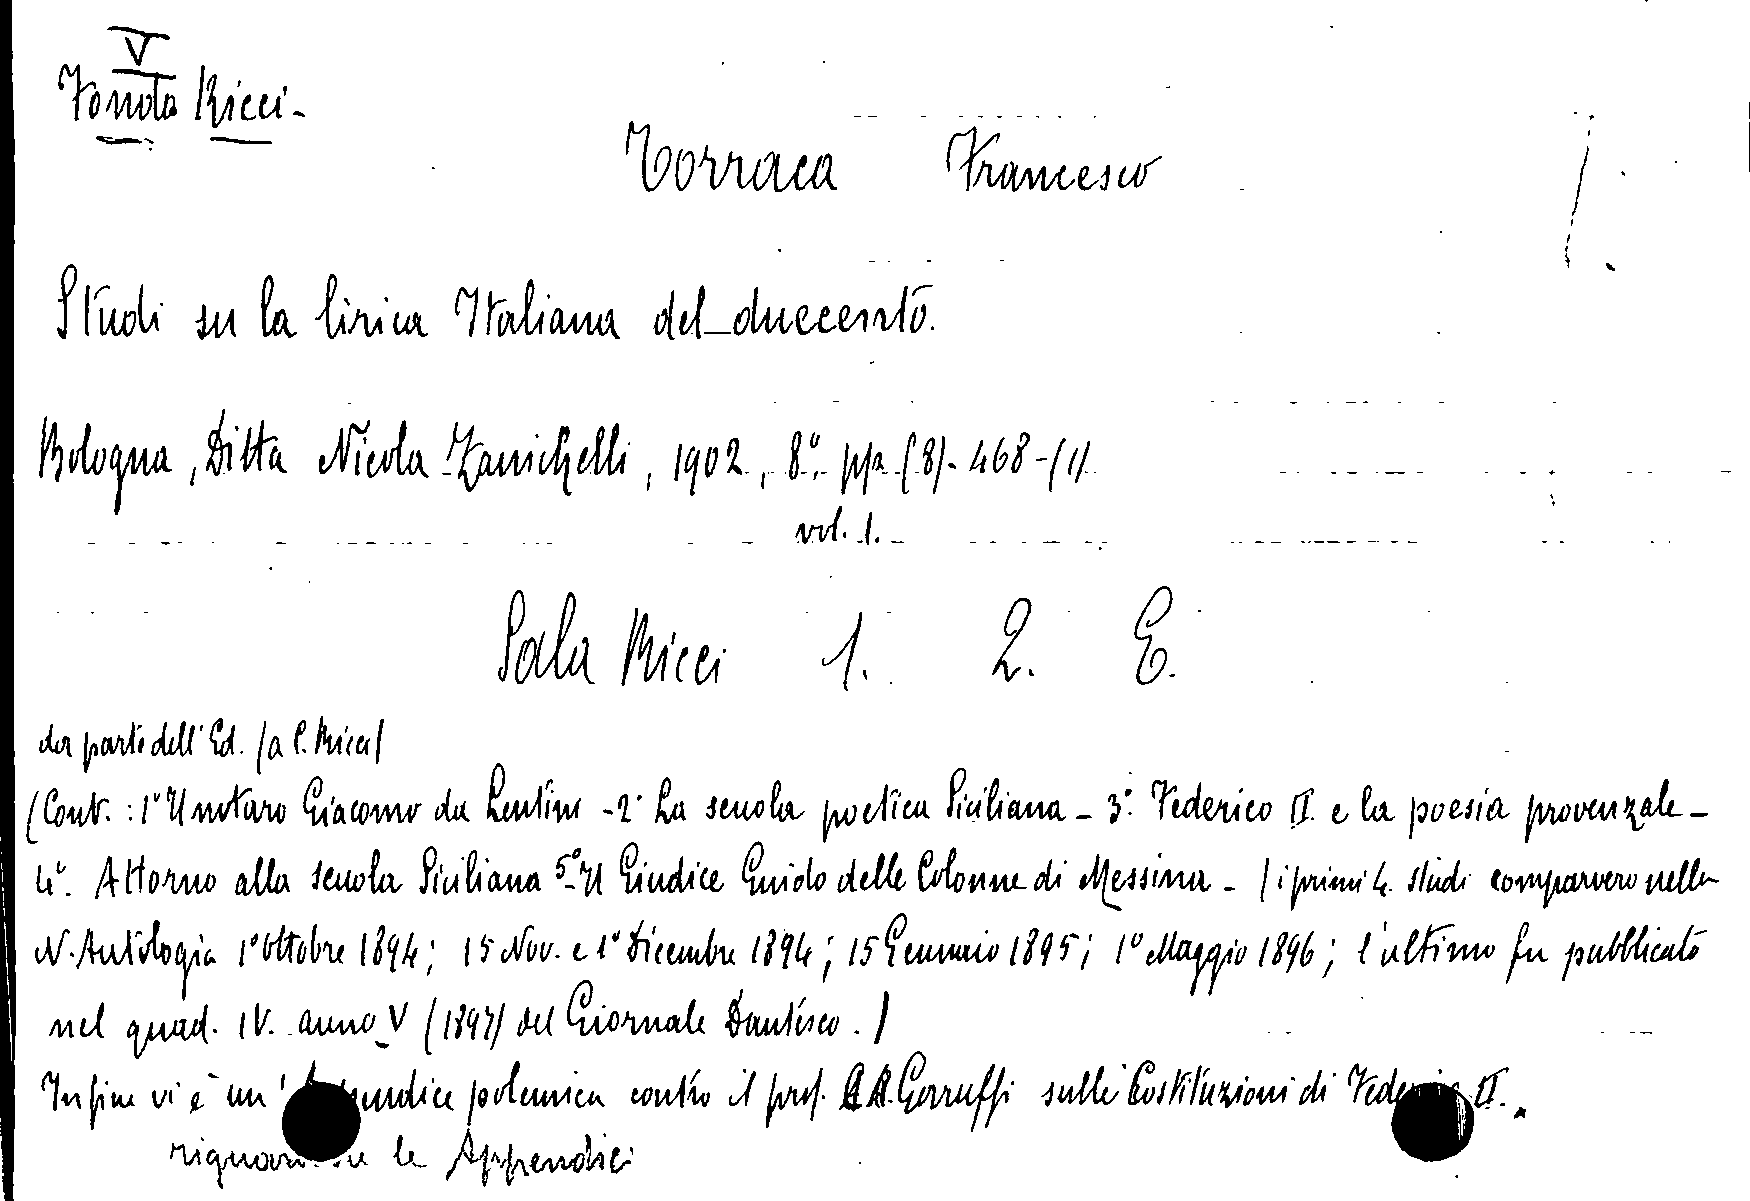 V
Fondo Ricci -
Torraca Francesco
Studi su la lirica Italiana del duecento.
Bologna, Ditta Nicola Zanichelli, 1902, 8°. pp. (8)- 468 -(1)
vol. 1.
Sala Ricci 1. 2. E.
da parte dell'Ed. (a C. Ricci)
(Cont.: 1° Il notaro Giacomo da Lentini - 2° La scuola poetica Siciliana - 3° Federico II e la poesia provenzale -
4°. Attorno alla scuola Siciliana 5° - Il Giudice Guido delle Colonne di Messina - (i primi 4. studi comparvero nella
N. Antologia 1° ottobre 1894; 15 Nov. e 1° Dicembre 1894; 15 Gennaio 1895; 1° Maggio 1896; l'ultimo fu pubblicato
nel quad. IV. anno V (1897) del Giornale Dantesco.)
Infine vi è un' polemica contro il prof. Garruffi sulle Costituzioni di II.
le Appendici